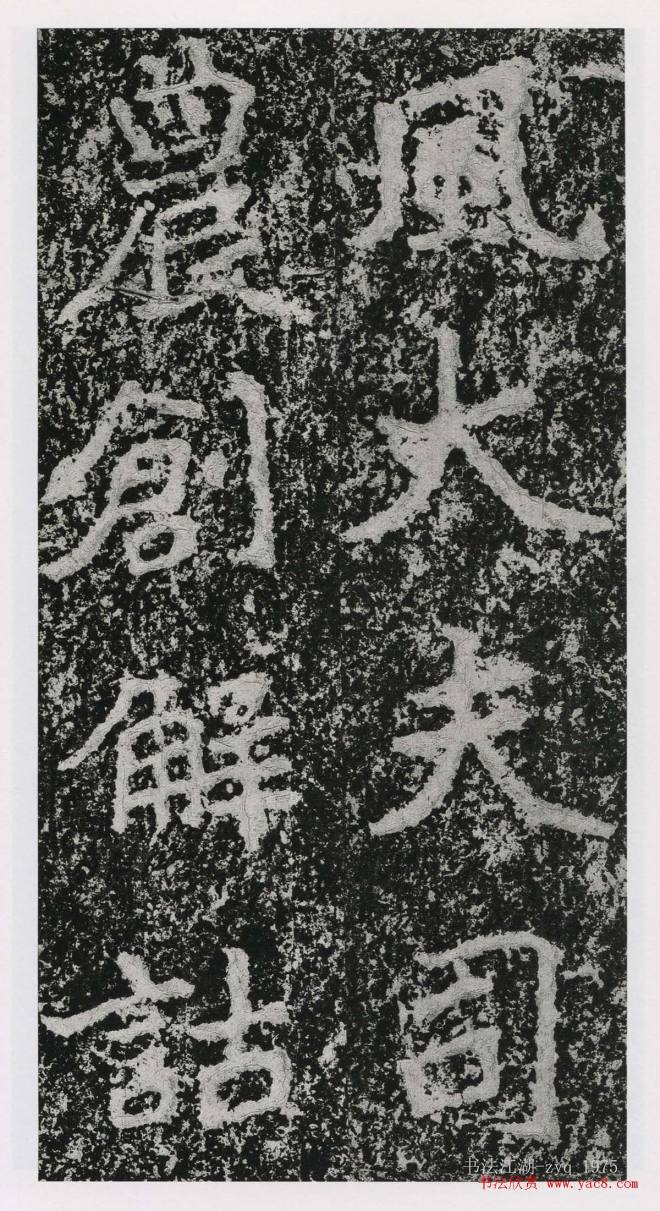 風大夫司
農創解詁
书法江湖-zvq_1975
书法欣赏 www.yac8.com